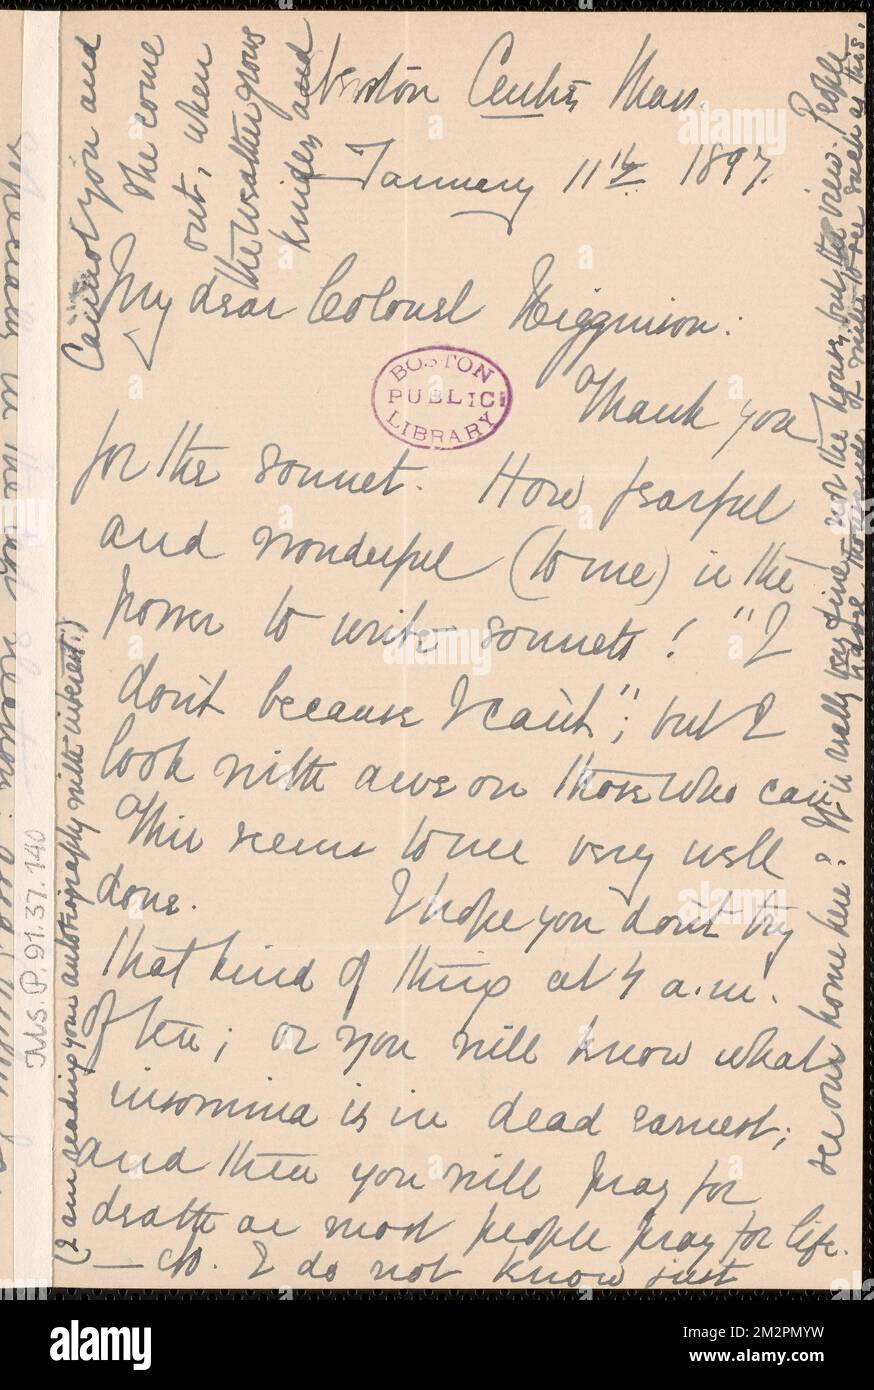 Newton Centre, Mass.
January 11th 1897.
My dear Colonel Higginson:
Thank you
for the sonnet. How fearful
and wonderful (to me) is the
power to write sonnets! "I
don't because I can't"; but I
look with awe on those who can.
This seems to me very well
done. I hope you don't try
that kind of thing at 4 a.m.
often; or you will know what
insomnia is in dead earnest;
and then you will pray for
death as most people pray for life.
— I do not know just
Cannot you and
she come
out, when
the weather grows
kinder, and
see our home here? It is really very fine — not the house, but the view. People
have thousands of miles to see such as this.
(I am reading your autobiography with interest.)
BOSTON
PUBLIC
LIBRARY
Ms. P. 91.37.140
alamy
Image ID: 2M2PMYW
www.alamy.com